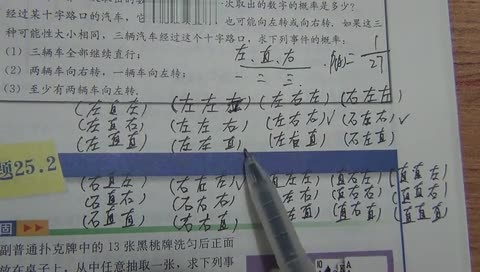 次取出的数字的概率是多少?
经过某十字路口的汽车,它
也可能向左转或向右转.如果这三
种可能性大小相同,三辆汽车经过这个十字路口,求下列事件的概率:
(1)三辆车全部继续直行;
(2)两辆车向右转,一辆车向左转;
(3)至少有两辆车向左转.
左、直、右
一 二 三
1
27
(左直左) (左左左) (左右左) (右左左)
(左直右) (左左右) (左右右)√ (右左右)√
(左直直) (左左直) (左右直) (右左直)
题25.2
(右直左) (右右左)√ 直左左) (直右左) (直直左)
(右直右) (右右右) (直右右) (直直右)
(右直直) (右右直) 左直) (直右直) (直直直)
固
副普通扑克牌中的13张黑桃牌洗匀后正面
放在桌子上,从中任意抽取一张,求下列事